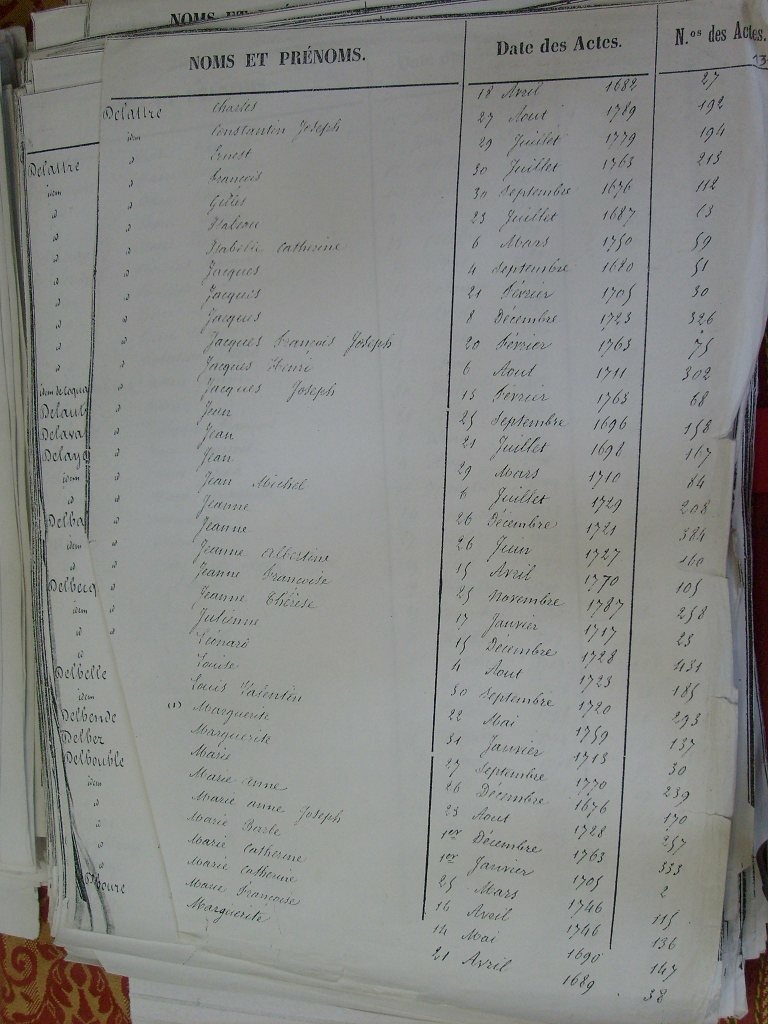 NOMS ET PRÉNOMS. Date des Actes. N.os des Actes.
Delattre Charles 18 Avril 1682 27
idem Constantin Joseph 27 Aout 1789 192
d Ernest 29 Juillet 1779 194
d François 30 Juillet 1763 213
d Gilles 30 Septembre 1676 112
d Isabeau 23 Juillet 1687 13
d Isabelle Catherine 6 Mars 1750 59
d Jacques 4 Septembre 1680 51
d Jacques 21 Février 1705 30
d Jacques 8 Décembre 1723 326
d Jacques François Joseph 20 Février 1763 75
d Jacques Henri 6 Aout 1711 302
d Jacques Joseph 13 Février 1763 68
d Jean 25 Septembre 1696 158
d Jean 21 Juillet 1698 167
d Jean 29 Mars 1710 84
d Jean Michel 6 Juillet 1729 208
d Jeanne 26 Décembre 1721 384
d Jeanne 26 Juin 1727 160
d Jeanne Albertine 15 Avril 1770 105
d Jeanne Françoise 25 Novembre 1787 258
d Jeanne Thérèse 17 Janvier 1717 23
d Julienne 15 Décembre 1728 431
Léonard 4 Aout 1723 185
Louise 30 Septembre 1720 293
Louis Valentin 22 Mai 1759 137
(1) Marguerite 31 Janvier 1713 30
Marguerite 27 Septembre 1770 239
Marie 26 Décembre 1676 170
Marie Anne 23 Aout 1728 257
Marie Anne Joseph 1er Décembre 1763 333
Marie Barbe 1er Janvier 1705 2
Marie Catherine 25 Mars 1746 115
Marie Catherine 16 Avril 1746 136
Marie Françoise 14 Mai 1690 147
Marguerite 21 Avril 1689 38
Delattre
idem
d
d
d
d
d
d
d
d
idem de Coqua
Delaut
Delava
Delaye
idem
d
Delba
idem
d
Delbecq
idem
d
d
Delbelle
idem
Delbende
Delbez
Delbouble
idem
d
d
d